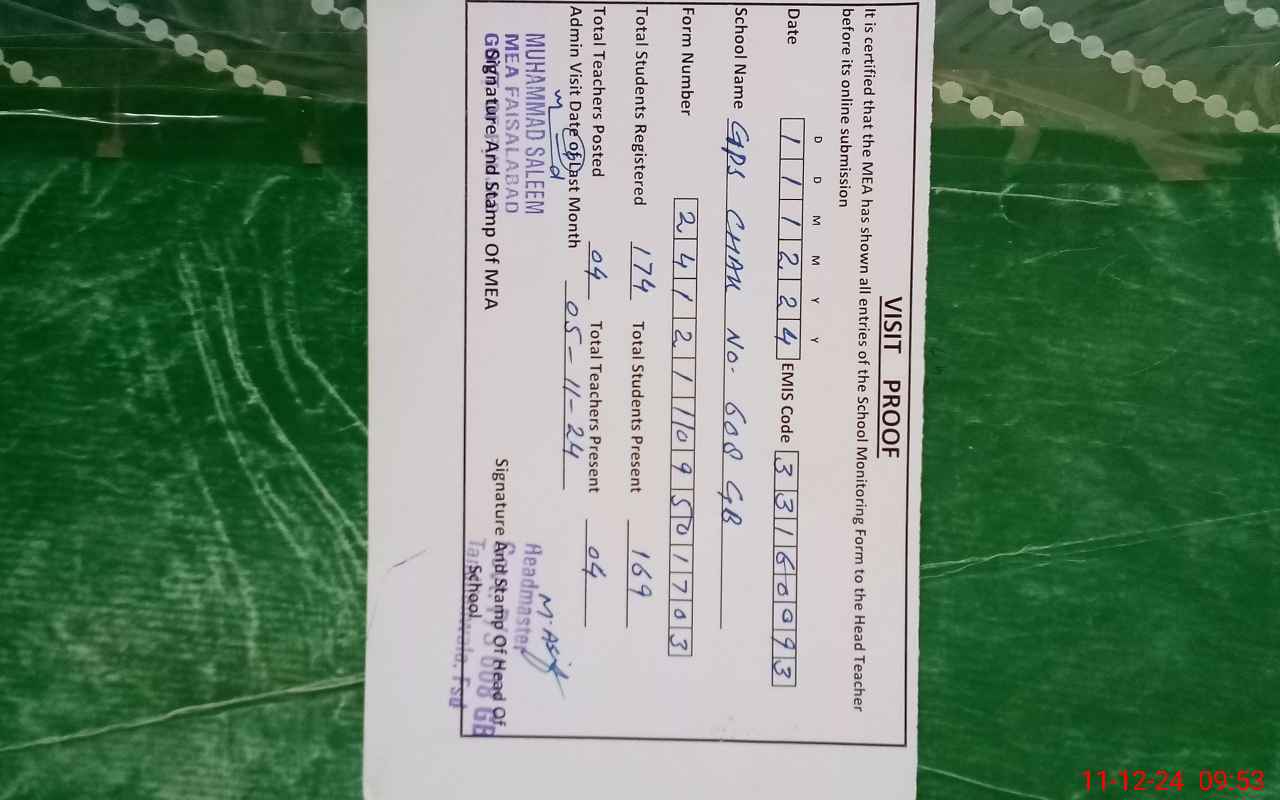 VISIT PROOF
It is certified that the MEA has shown all entries of the School Monitoring Form to the Head Teacher
before its online submission
D D M M Y Y
Date 1 1 1 2 2 4 EMIS Code 3 3 1 6 0 0 9 3
School Name GPS CHAK No. 608 GB
Form Number 2 4 1 2 1 1 0 9 5 0 1 7 0 3
Total Students Registered 174 Total Students Present 169
Total Teachers Posted 04 Total Teachers Present 04
Admin Visit Date of Last Month 05-11-24
MUHAMMAD SALEEM
MEA FAISALABAD
Signature And Stamp Of MEA
M. Asif
Headmaster
608 GB
Signature And Stamp Of Head Of
School
Fsd
11-12-24 09:53